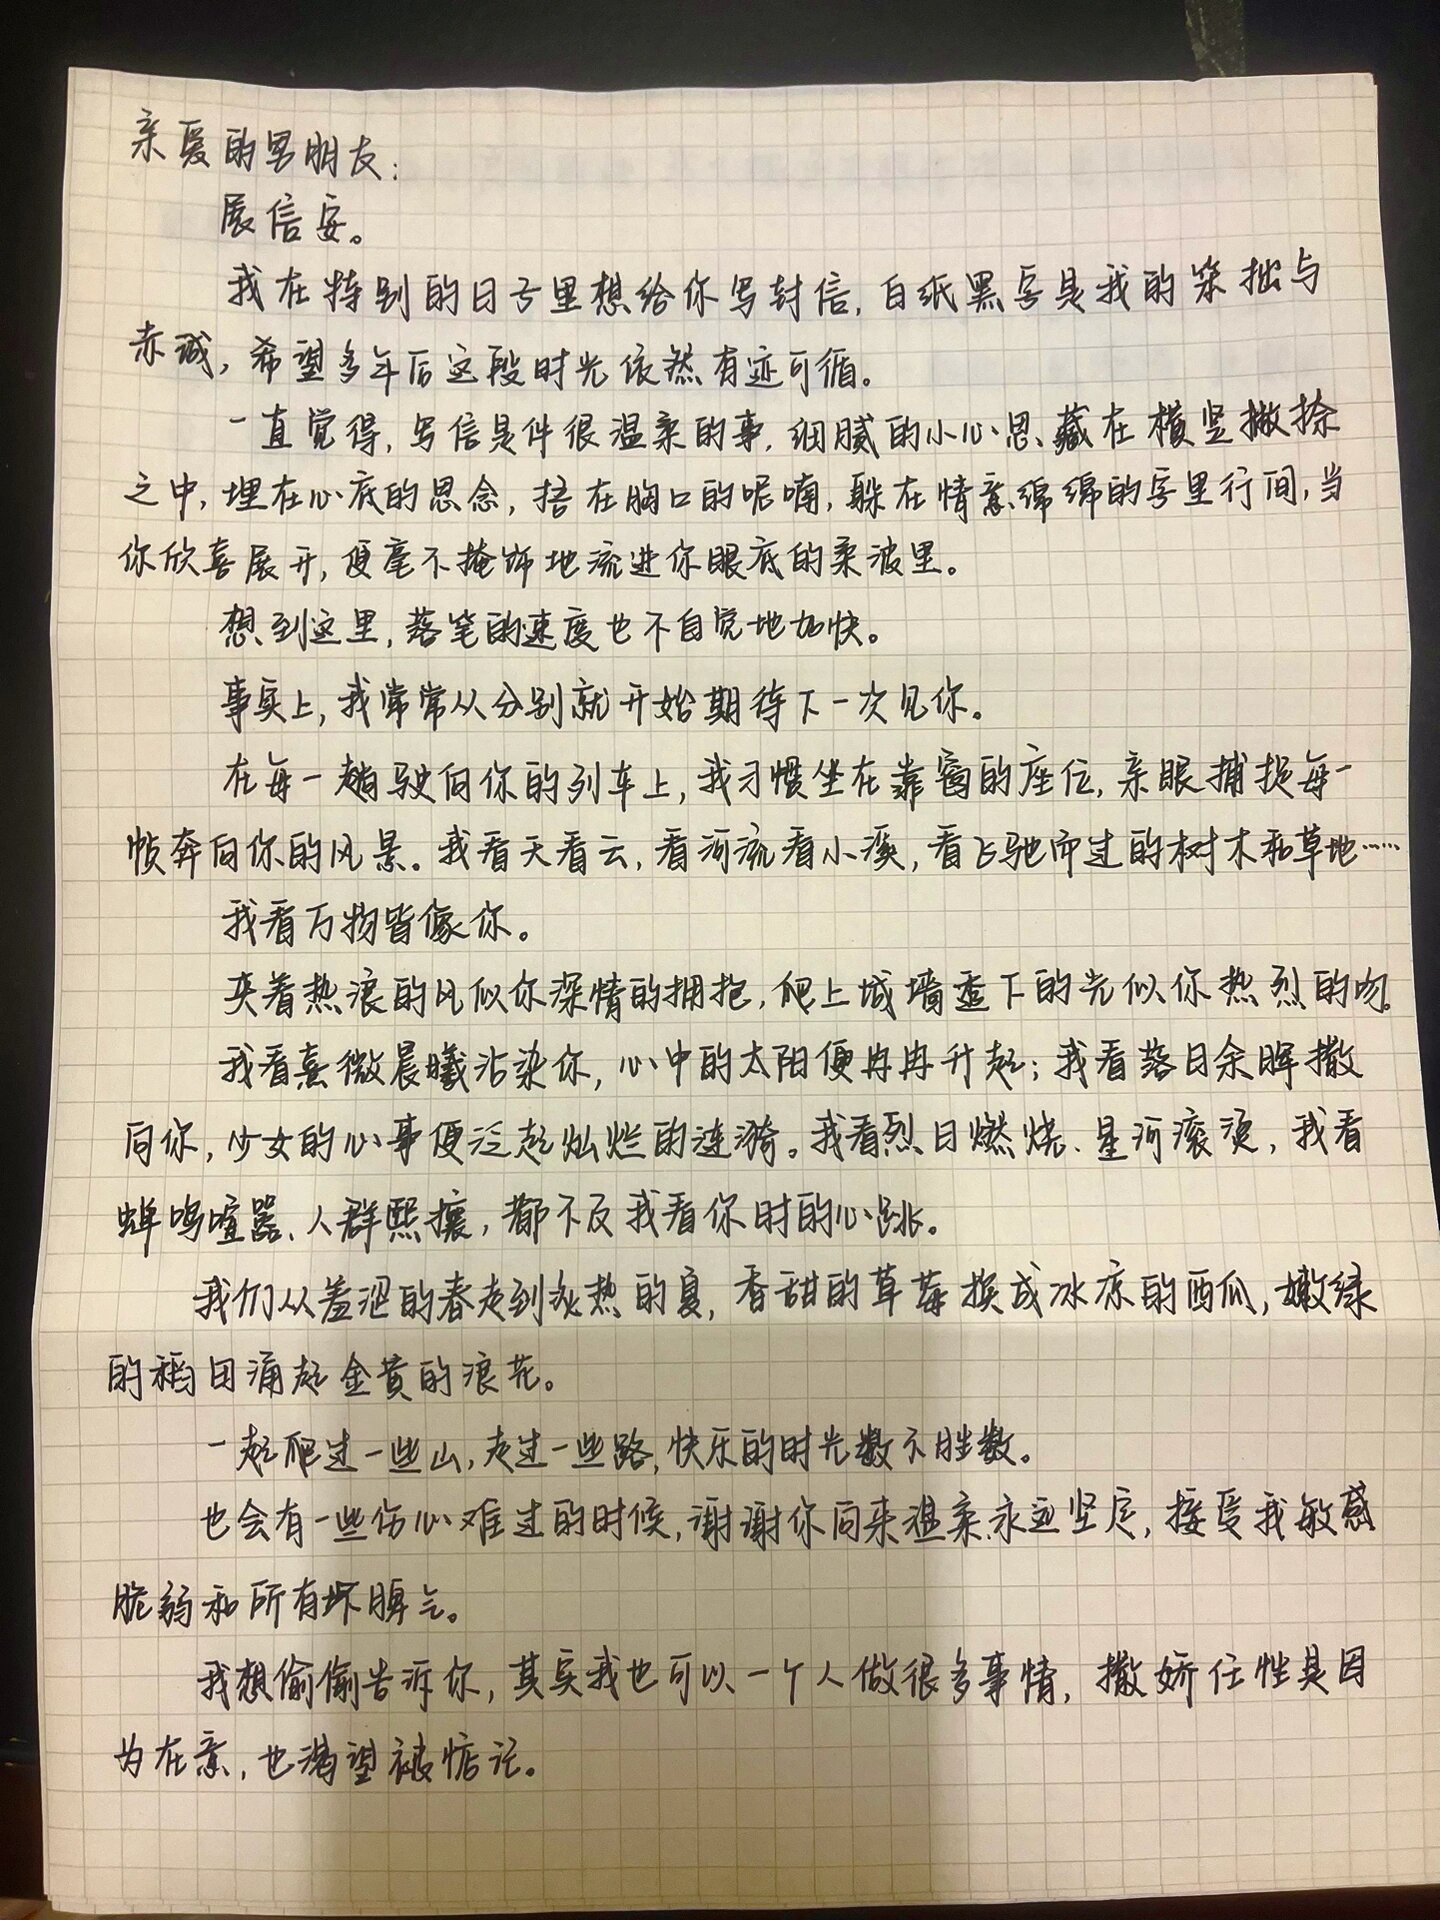 亲爱的男朋友：
展信安。
我在特别的日子里想给你写封信，白纸黑字是我的笨拙与
赤诚，希望多年后这段时光依然有迹可循。
一直觉得，写信是件很温柔的事，细腻的小心思藏在横竖撇捺
之中，埋在心底的思念，捂在胸口的呢喃，躲在情意绵绵的字里行间，当
你欣喜展开，便毫不掩饰地流进你眼底的柔波里。
想到这里，落笔的速度也不自觉地加快。
事实上，我常常从分别就开始期待下一次见你。
在每一趟驶向你的列车上，我习惯坐在靠窗的座位，亲眼捕捉每一
帧奔向你的风景。我看天看云，看河流看小溪，看飞驰而过的树木和草地……
我看万物皆像你。
夹着热浪的风似你深情的拥抱，爬上城墙透下的光似你热烈的吻。
我看熹微晨曦沾染你，心中的太阳便冉冉升起；我看落日余晖撒
向你，少女的心事便泛起灿烂的涟漪。我看烈日燃烧、星河滚烫，我看
蝉鸣喧嚣、人群熙攘，都不及我看你时的心跳。
我们从羞涩的春走到炙热的夏，香甜的草莓换成冰凉的西瓜，嫩绿
的稻田涌起金黄的浪花。
一起爬过一些山，走过一些路，快乐的时光数不胜数。
也会有一些伤心难过的时候，谢谢你向来温柔永远坚定，接受我敏感
脆弱和所有坏脾气。
我想偷偷告诉你，其实我也可以一个人做很多事情，撒娇任性是因
为在意，也渴望被惦记。